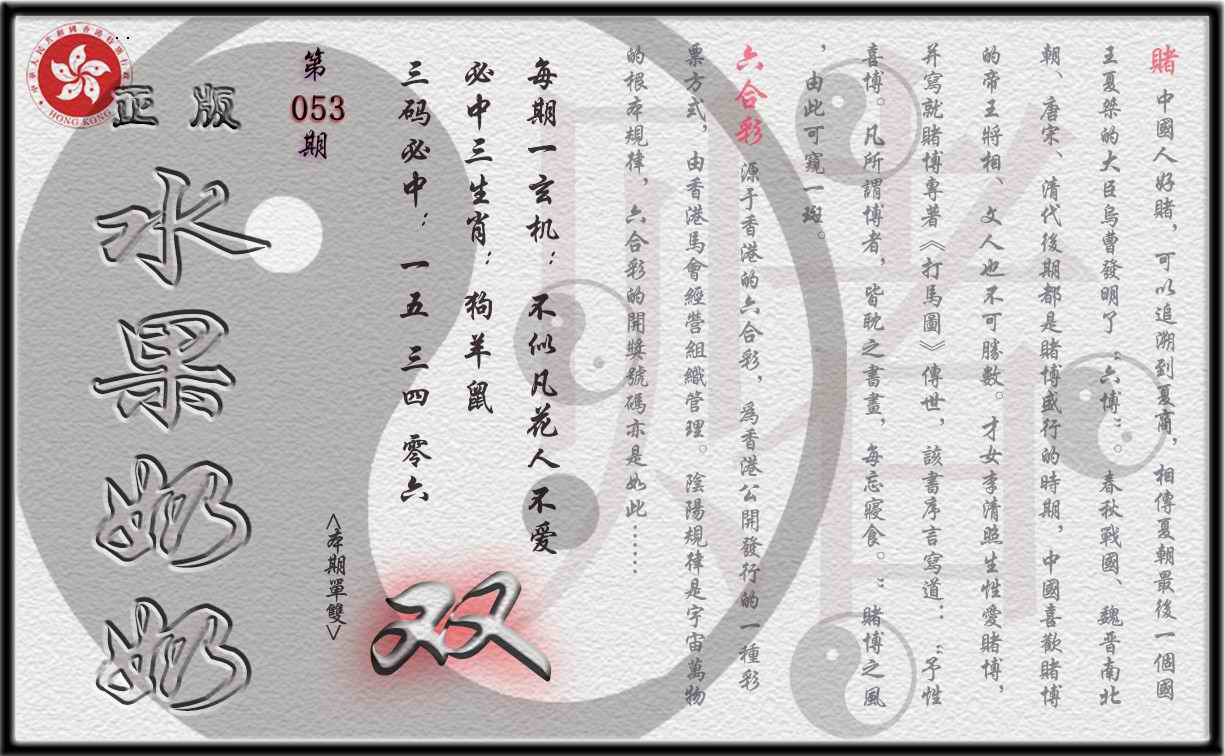 賭 中國人好賭，可以追溯到夏商，相傳夏朝最後一個國
王夏桀的大臣烏曹發明了“六博”。春秋戰國、魏晉南北
朝、唐宋、清代後期都是賭博盛行的時期，中國喜歡賭博
的帝王將相、文人也不可勝數。才女李清照生性愛賭博，
并寫就賭博專著《打馬圖》傳世，該書序言寫道：“予性
喜博。凡所謂博者，皆耽之書晝，每忘寢食。”賭博之風
，由此可窺一斑。
六合彩 源于香港的六合彩，爲香港公開發行的一種彩
票方式，由香港馬會經營組織管理。陰陽規律是宇宙萬物
的根本規律，六合彩的開獎號碼亦是如此……
每期一玄机：不似凡花人不爱
必中三生肖：狗羊鼠
三码必中：一五 三四 零六
第
053
期
<本期單雙>
双
正版
水果奶奶
中華人民共和國香港特別行政區
HONG KONG